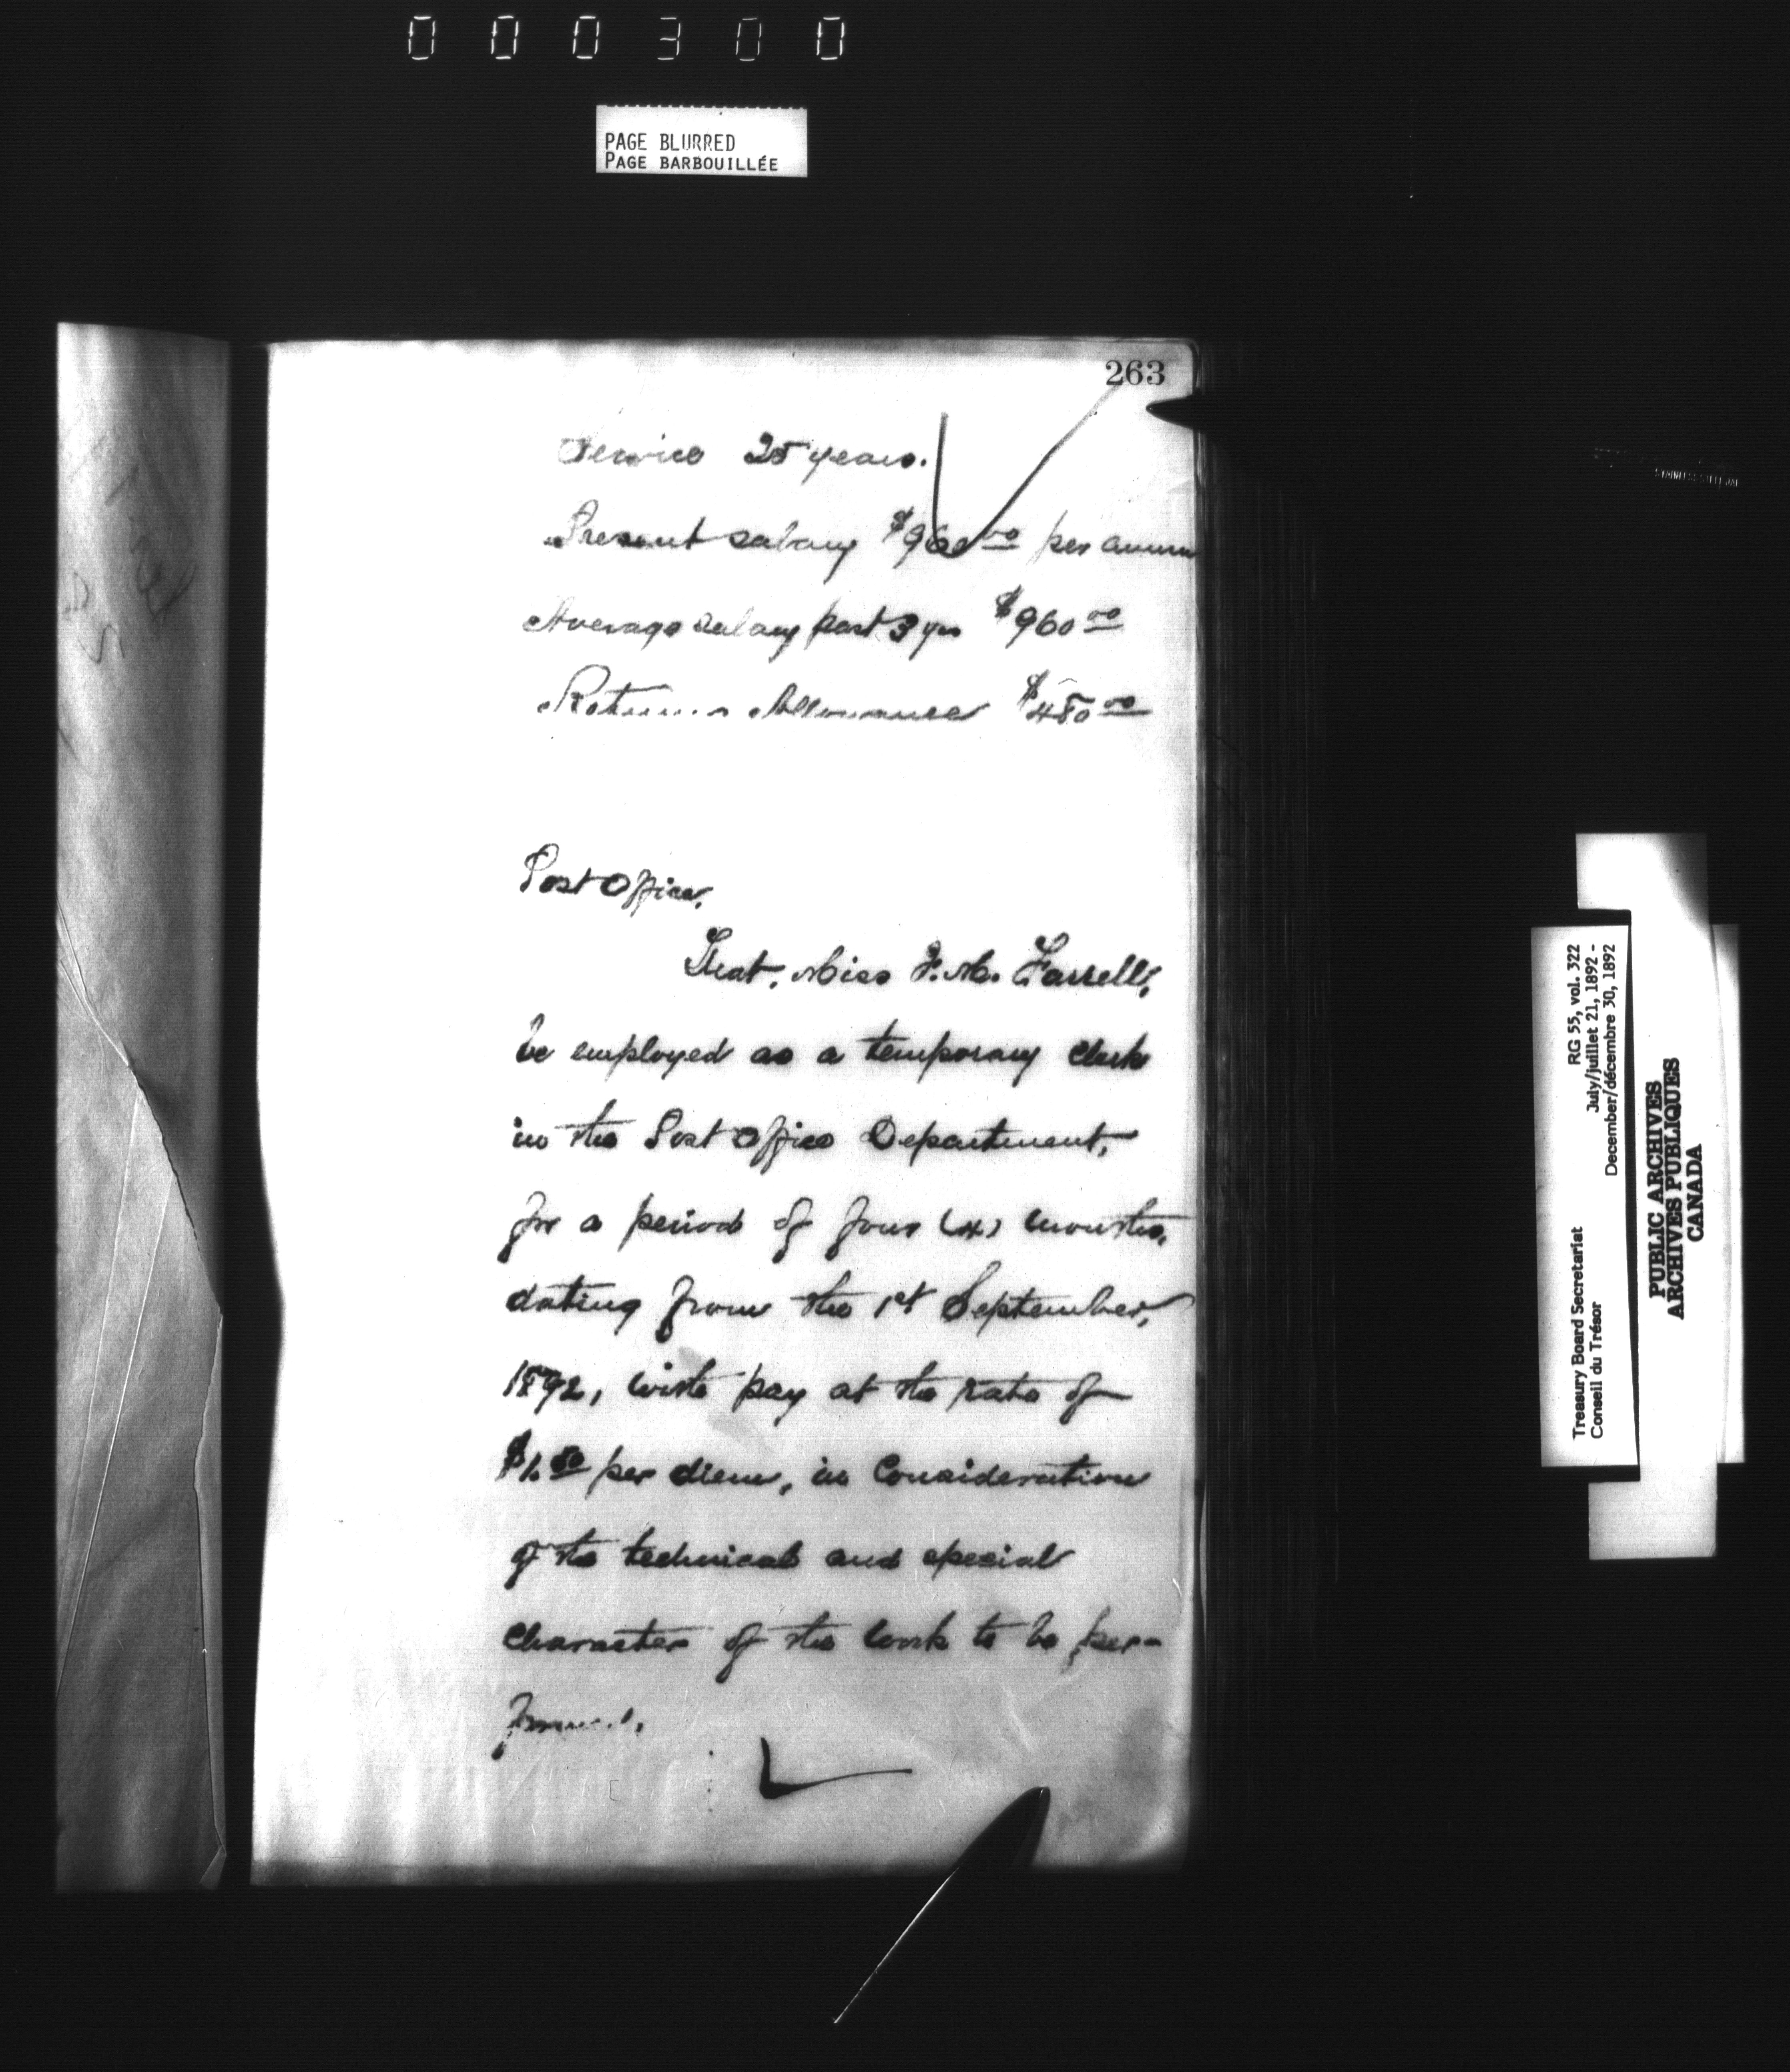 000300
PAGE BLURRED
PAGE BARBOUILLÉE
263
Service 25 years.
Present salary $960 00 per annum
Average salary past 3 yrs $960 00
Allowance $480 00
Post Office.
That, Miss F. M. Farrell,
be employed as a temporary clerk
in the Post Office Department,
for a period of four (4) months,
dating from the 1st September,
1892, with pay at the rate of
$1.50 per diem, in consideration
of the technical and special
character of the work to be per-
formed.
Treasury Board Secretariat RG 55, vol. 322
Conseil du Trésor July/juillet 21, 1892 -
December/décembre 30, 1892
PUBLIC ARCHIVES
ARCHIVES PUBLIQUES
CANADA